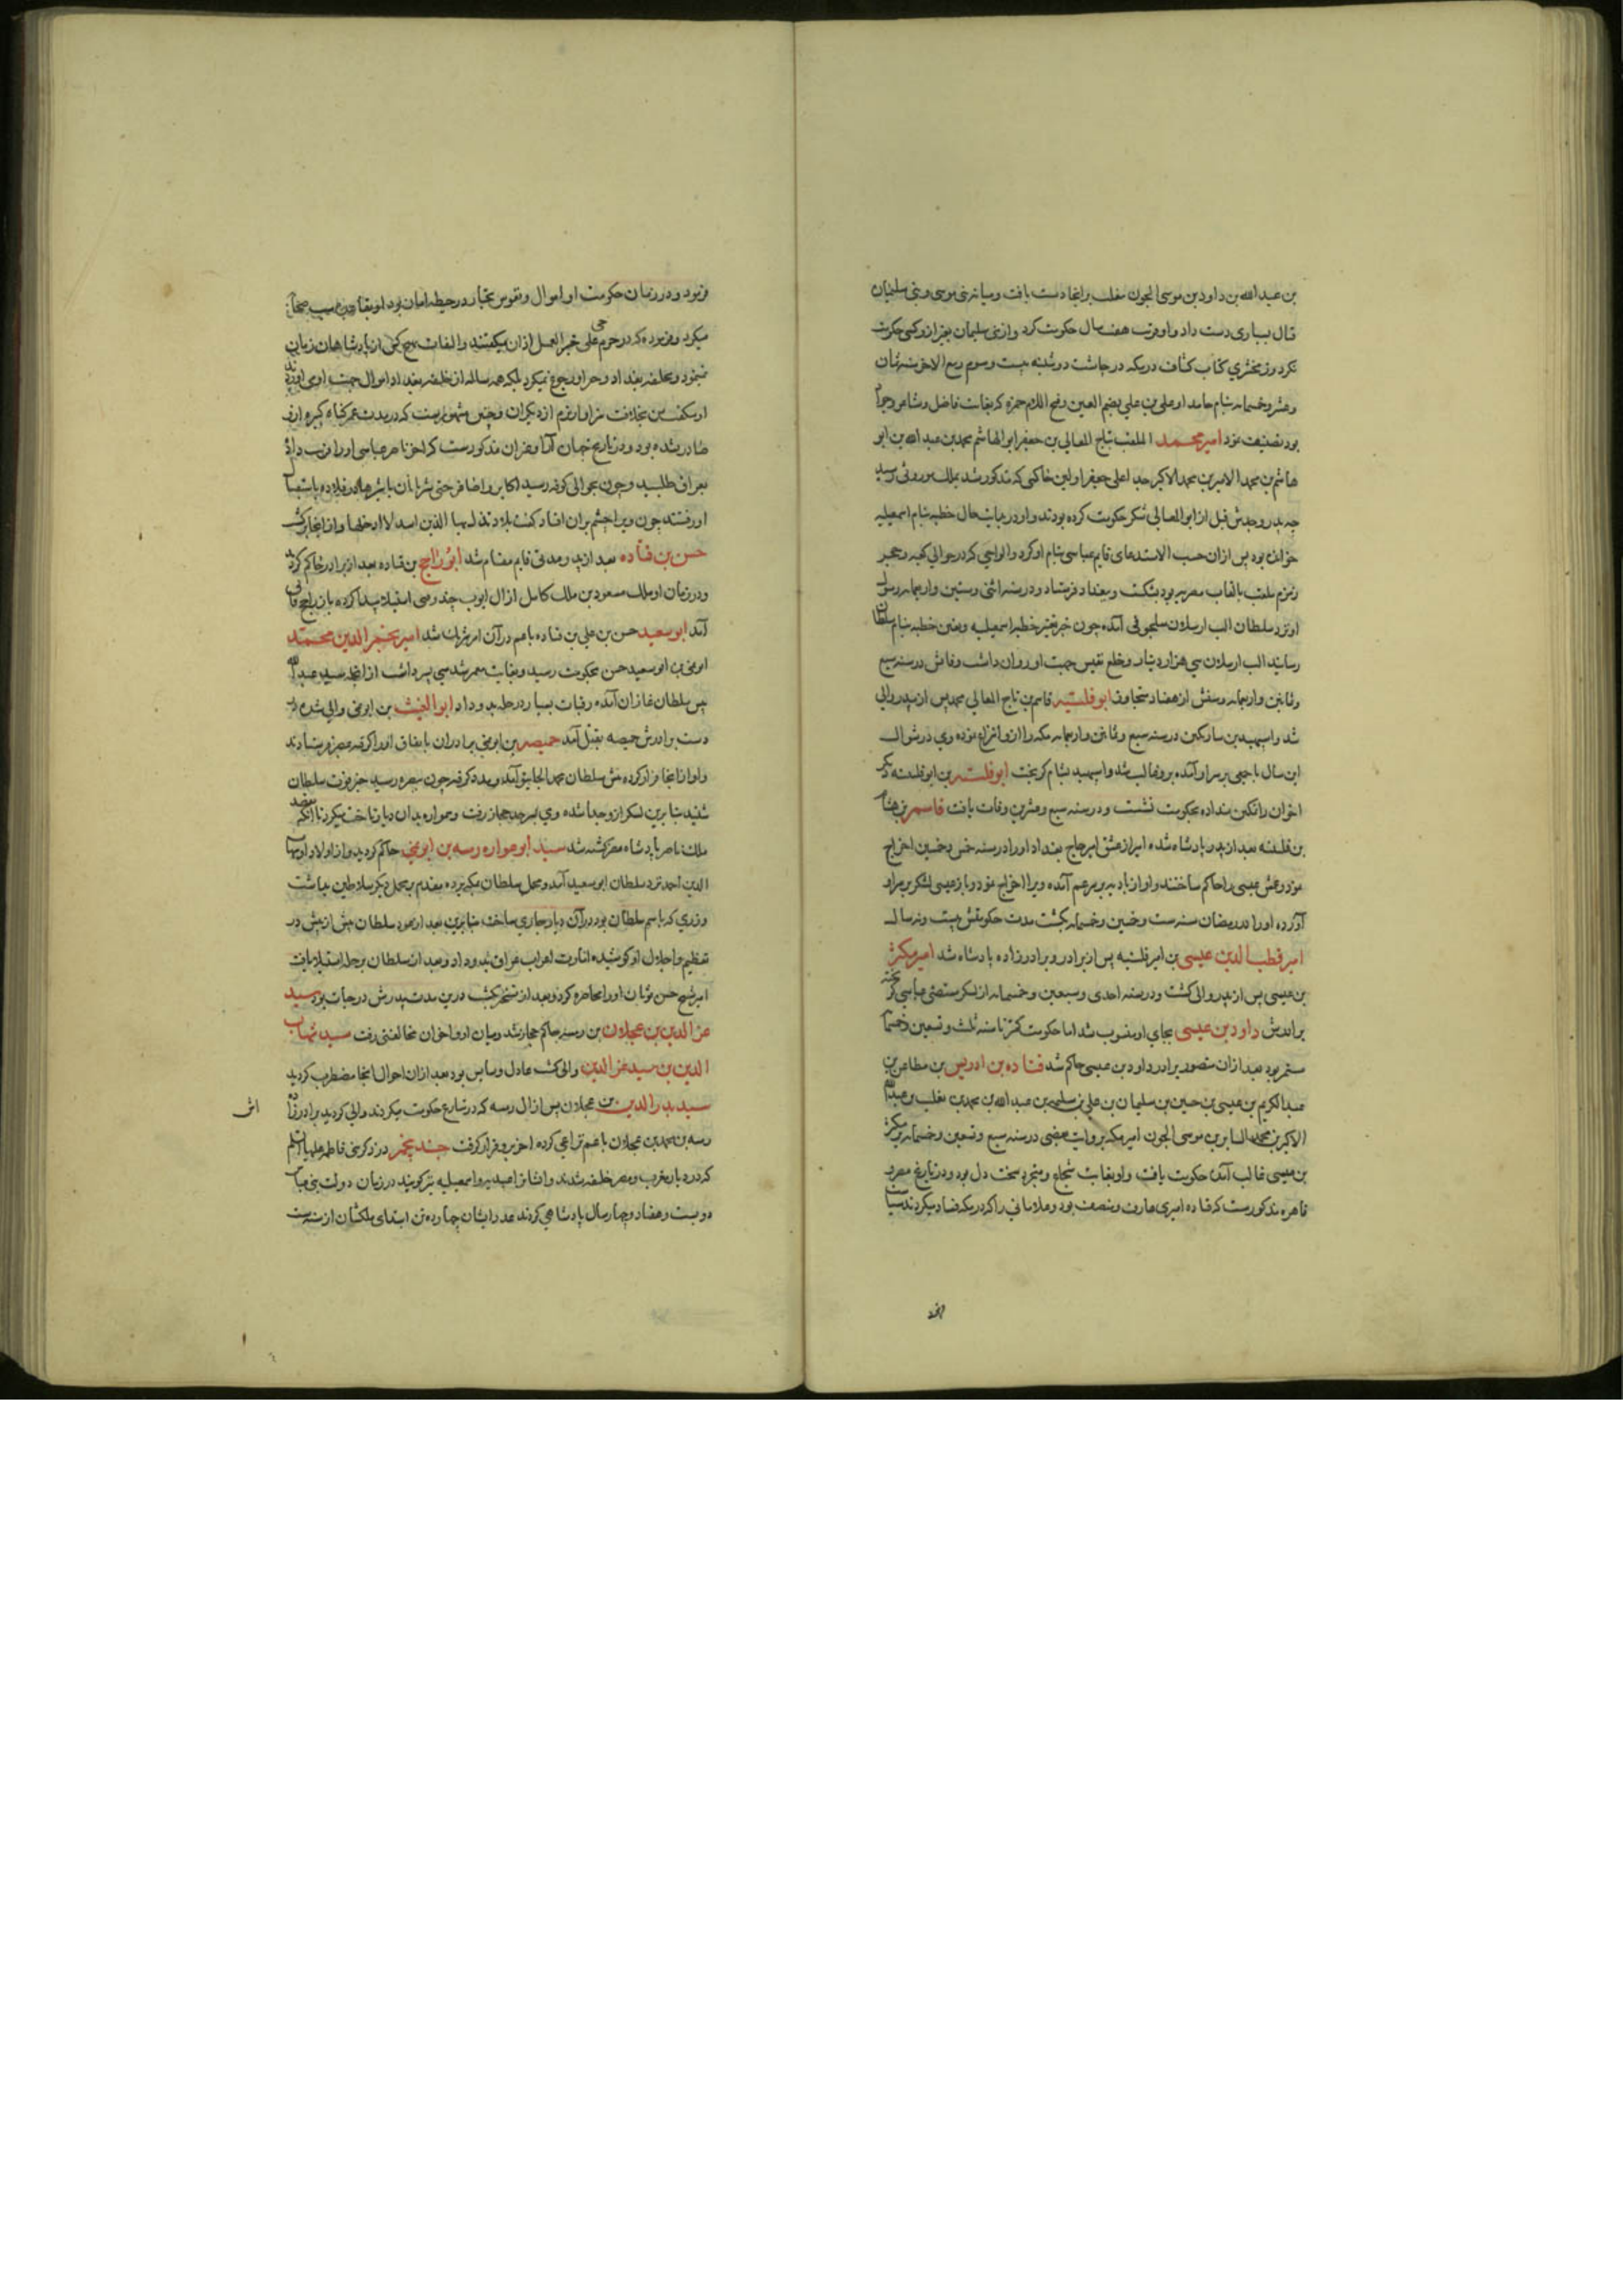 بن عبد الله بن داود بن موسی الجون مغلب برانجا دست یافت و میانه بنی موسی و بنی سلیمان
قتال بسیاری دست داد و او قرب هفت سال حکومت کرد و از بنی سلیمان بغیر ازو کسی حکومت
نکرد و زمخشری کتاب کشاف در مکه در چاشت دوشنبه بیست و سوم ربیع الاخر سنه ثمان
و عشر و خمسمایه بنام او علی بن علی بضم العین و فتح اللام حمزه که بغایت فاضل و شاعر و جواد
بود تصنیف نمود امیر محمد الملقب بتاج المعالی بن جعفر ابو الهاشم محمد بن عبد الله بن ابو
هاشم بن محمد الامیر بن محمد الاکبر جد اعلی جعفر اولین حاکمی که مذکور شد بملک موروثی رسید
چه پدر و جدش قبل از ابو المعالی شکر حکومت کرده بودند و او در مبادی حال خطبه بنام اسمعیلیه
خوانده بود پس ازان حسب الاستدعای قایم عباسی بنام او کرد و الواحی که در حوالی کعبه و حجر
و زمزم ملقب بالقاب مصریه بود بشکست و ببغداد فرستاد و در سنه اثنی و ستین و اربعمایه رسول
او نزد سلطان الب ارسلان سلجوقی آمده چون خبر تغییر خطبه اسمعیلیه و تعین خطبه بنام سلطان
رسانید الب ارسلان سی هزار دینار و خلع نفیس جهت او روان داشت وفاتش در سنه سبع
و ثمانین و اربعمایه و سنش از هفتاد متجاوز ابو فلیته قاسم بن تاج المعالی محمد پس از پدر والی
شد و اسپهبد بن سارتکین در سنه سبع و ثمانین و اربعمایه مکه را ازو انتزاع نموده وی در شوال
این سال با جمعی بر سر او آمده برو غالب شد و اسپهبد بشام گریخت ابو فلیته بن ابو فلیته دیگر
اخوان را تمکین نداده بحکومت نشست و در سنه سبع و عشرین وفات یافت قاسم بن هاشم
بن فلیته بعد از پدر پادشاه شده امیر ارغش امیر حاج بغداد او را در سنه خمس و خمسین اخراج
نمود و عمش عیسی را حاکم ساختند و او از بادیه بر سر عم آمده ویرا اخراج نمود و باز عیسی لشکر بر سر او
آورده او را در رمضان سنه ست و خمسین و خمسمایه بکشت مدت حکومتش بیست و نه سال
امیر قطب الدین عیسی بن امیر فلیته پس از برادر و برادرزاده پادشاه شد امیر مکثر
بن عیسی پس از پدر والی گشت و در سنه احدی و سبعین و خمسمایه از لشکر مستضی عباسی گریخته
برادرش داود بن عیسی بجای او منصوب شد اما حکومت مکثر تا سنه ثلث و تسعین و خمسمایه
مستمر بود بعد ازان منصور برادر داود بن عیسی حاکم شد قتاده بن ادریس بن مطاعن بن
عبد الکریم بن عیسی بن حسین بن سلیمان بن علی بن سلیمان بن عبد الله بن محمد بن مغلب بن عبد الله
الاکبر بن محمد السایر بن موسی الجون امیر مکه بروایت بعضی در سنه سبع و تسعین و خمسمایه بر مکثر
بن عیسی غالب آمده حکومت یافت و او بغایت شجاع و متجبر و سخت دل بود و در تاریخ مصر و
قاهره مذکورست که قتاده امیری عارف و منصف بود و غلامانی را که در مکه فساد میکردند سیاست
فرمود و در زمان حکومت او اموال و نفوس تجار در حیطه امان بود او بقا
میکرد و فرموده که در حرم حی علی خیر العمل اذان میگفتند و التفات بهیچ کس از پادشاهان زمان
نمینمود و بخلفه بغداد و جز او رجوع نمیکرد بلکه همه ساله از خلیفه بغداد اموال جهت او می آوردند
او میگفت من بخلافت سزاوارترم از دیگران و چنین مشهورست که در مدت عمر گناه کبیره ازو
صادر نشده بود و در تاریخ جهان آرا و غیران مذکورست که اخر ناصر عباسی او را فریب داده
بعراق طلبید و چون بحوالی کوفه رسید اکابر و اصاغر حتی شیربانان با شیرها در قلاده باستقبال
او رفتند چون ویرا چشم بران افتاد گفت بلاد تذل بها الذین اسد لا ادخلها و از انجا برگشت
حسن بن قتاده بعد از پدر مدتی قایم مقام شد ابو راجح بن قتاده بعد از برادر حاکم گردید
و در زمان او ملک مسعود بن ملک کامل از ال ایوب چند وقتی استیلا پیدا کرده باز راجح فایق
آمد ابو سعید حسن بن علی بن قتاده با عم در آن امر شریک شد امیر نجم الدین محمد
ابو نمی بن ابو سعید حسن بحکومت رسید و بغایت معمر شد سی پسر داشت از انجمله سید عبد الله
پیش سلطان غازان آمده رقبات بسیار در حله بدو داد ابو الغیث بن ابو نمی والی شده بر
دست برادرش حمیصه بقتل آمد حمیصه بن ابو نمی برادران باتفاق او را گرفته بمصر فرستادند
و او از انجا فرار کرده پیش سلطان محمد الجایتو آمد و مدد گرفته چون ببصره رسید خبر فوت سلطان
شنید بنابرین لشکر ازو جدا شده وی بسرحد حجاز رفت و همواره بدان دیار تاخت میکرد تا آنکه بقصد
ملک ناصر پادشاه مصر کشته شد سید ابو عواره رمیثه بن ابو نمی حاکم گردید و از اولاد او شهاب
الدین احمد نزد سلطان ابو سعید آمد و محمل سلطان بمکه برده مقدم بر محمل دیگر سلاطین بداشت
و زری که باسم سلطان بود در آن دیار جاری ساخت بنابرین بعد از عود سلطان بیش از پیش در
تعظیم و اجلال او کوشیده امارت اعراب عراق بدو داد و بعد از سلطان بر حله استیلا یافت
امیر شیخ حسن نویان او را محاصره کرد و بعد از تسخیر بکشت درین مدت پدرش در حیات بود سید
عز الدین بن عجلان بن رمیثه حاکم حجاز شد و میان او و اخوان مخالفتی رفت سید شهاب
الدین بن سید عز الدین والی گشت عادل و سایس بود بعد ازان احوال انجا مضطرب گردید
سید بدر الدین بن عجلان پس از ال رمیثه که در شارع حکومت میکردند والی گردید برادرزاده اش
رمیثه بن محمد بن عجلان با عم نزاعی کرده اخر برو قرار گرفت جند پنجم در ذکر بنی فاطمه علیها السلم
که در دیار مغرب و مصر خلیفه شدند و ایشانرا عبیدیه و اسمعیلیه نیز گویند در زمان دولت بنی عباس
دویست و هفتاد و چهار سال پادشاهی کردند عدد ایشان چهارده تن ابتدای ملکشان از سنه ست